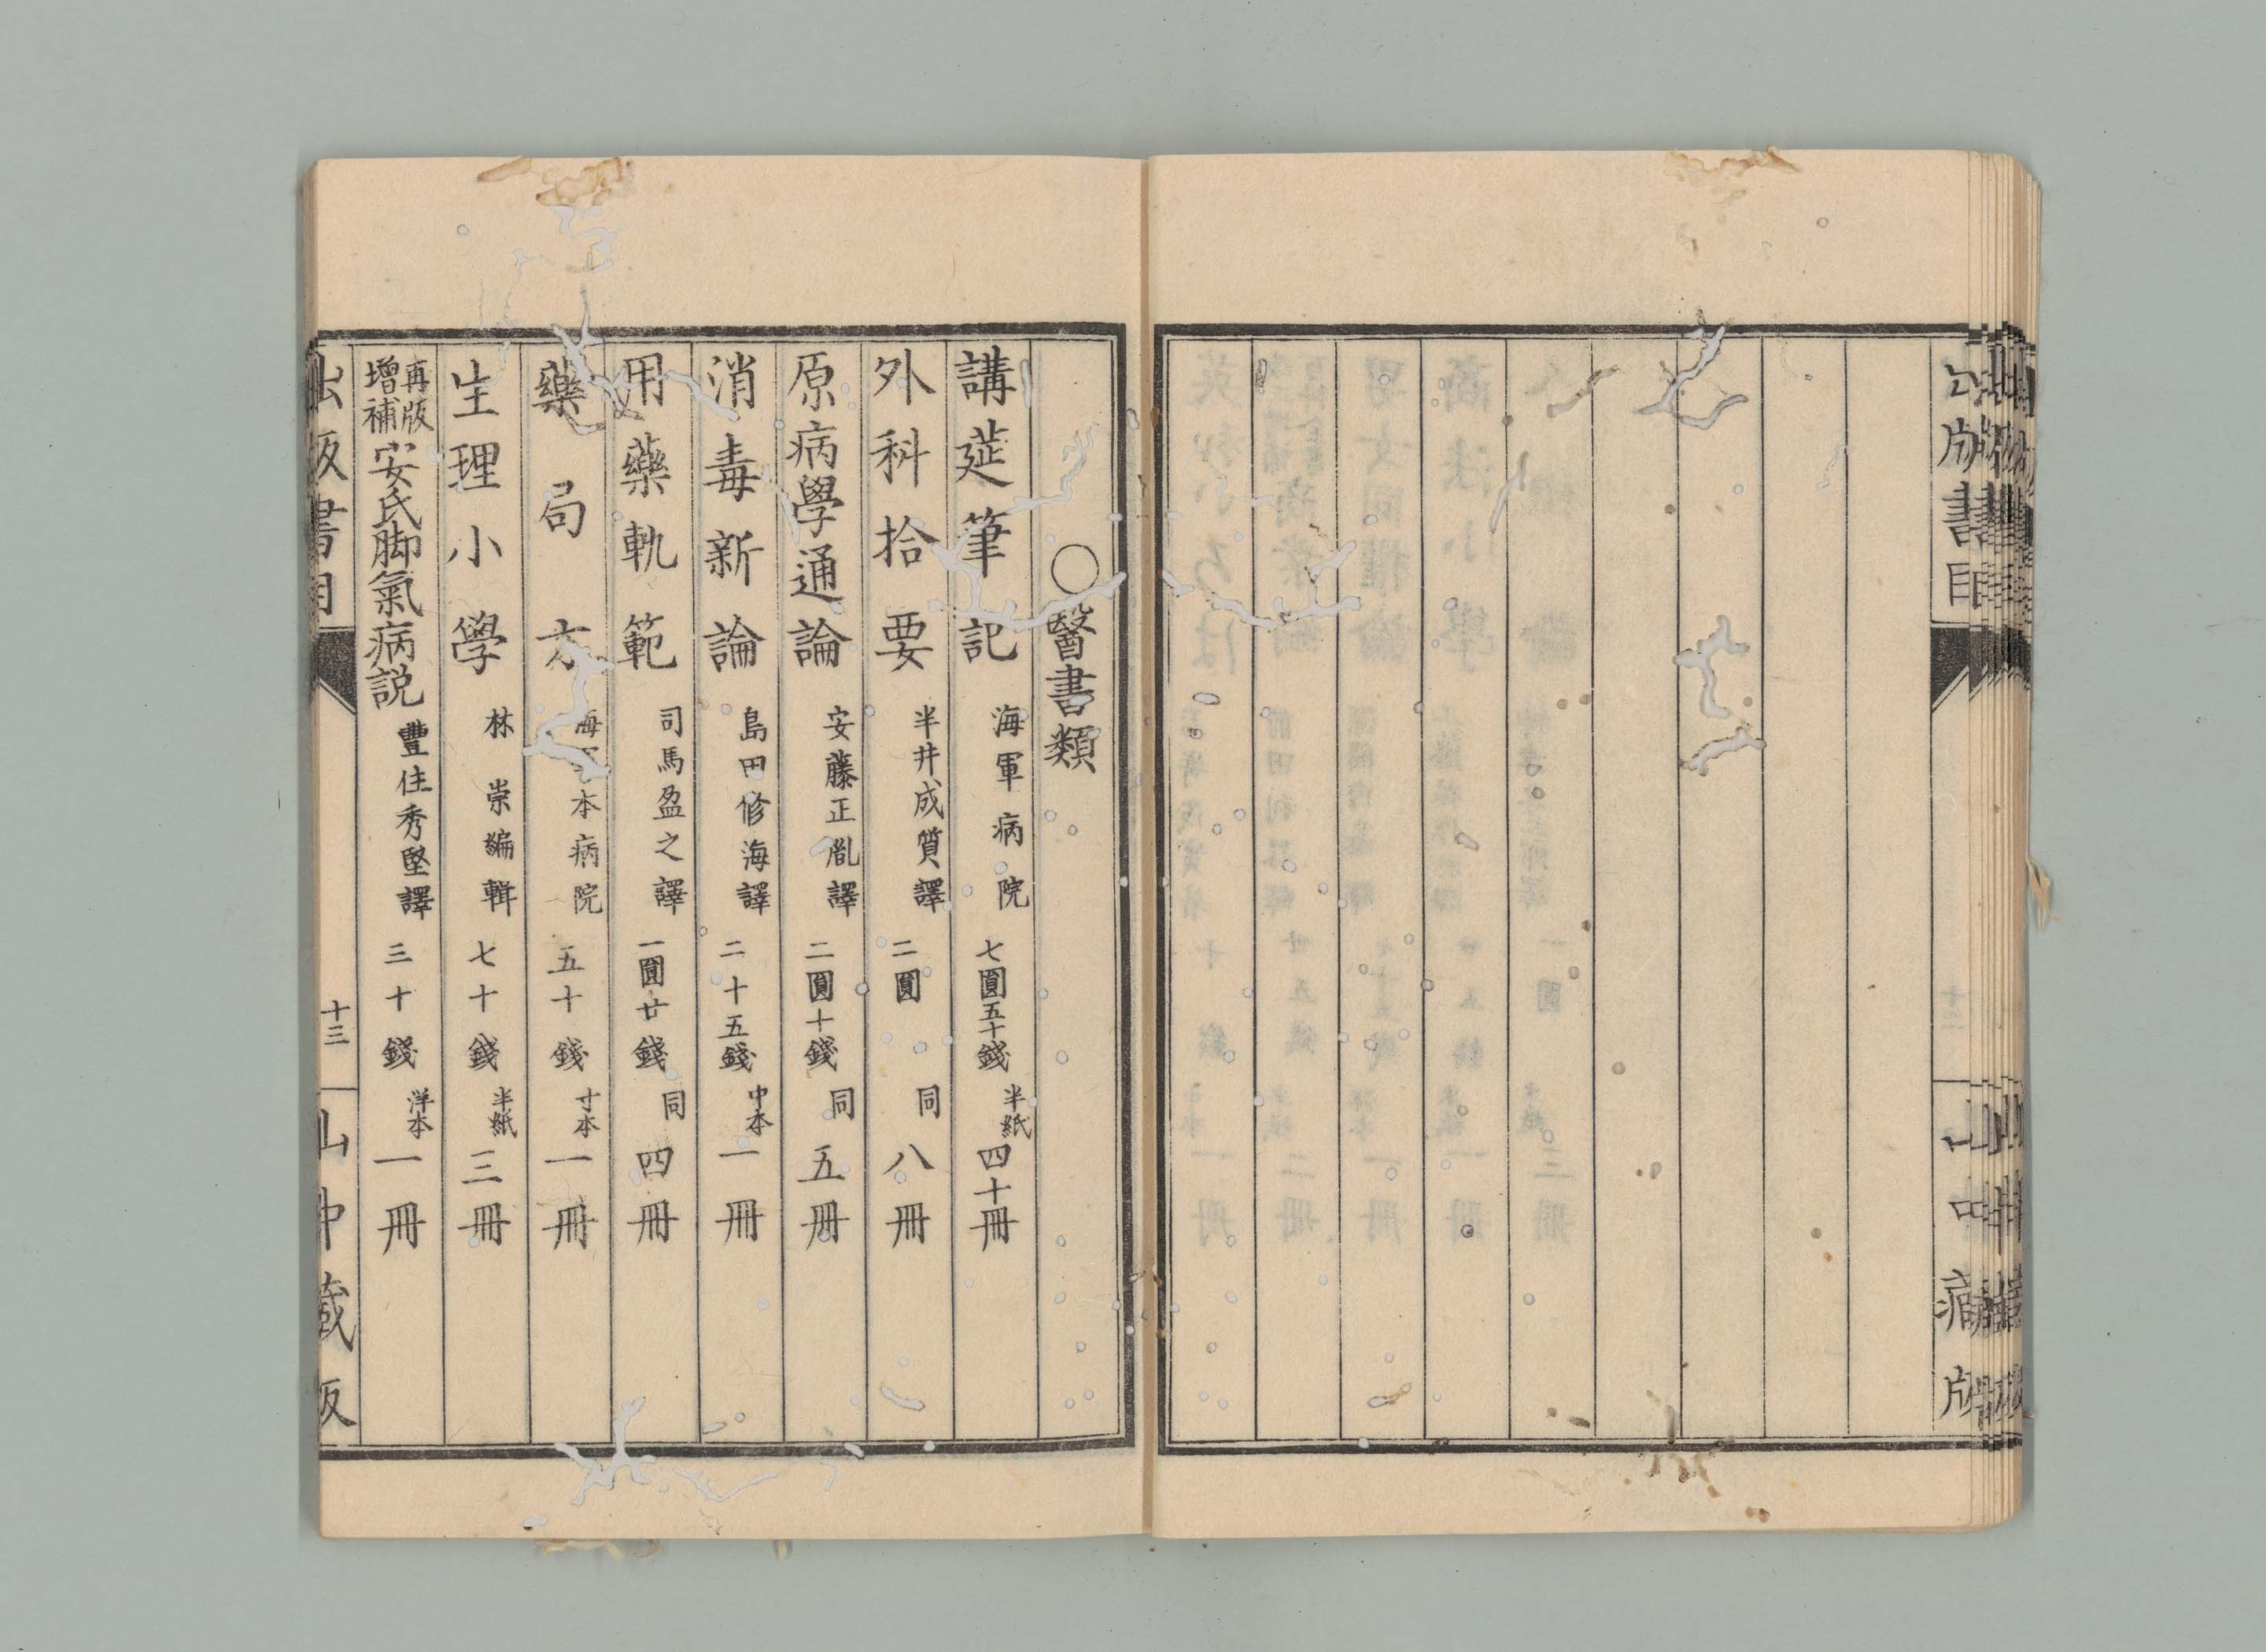 ○醫書類
講莚筆記 海軍病院 七圓五十錢 半紙 四十冊
外科拾要 半井成質譯 二圓 同 八冊
原病學通論 安藤正胤譯 二圓十錢 同 五冊
消毒新論 島田修海譯 二十五錢 中本 一冊
用藥軌範 司馬盈之譯 一圓廿錢 同 四冊
藥局方 海 本病院 五十錢 寸本 一冊
生理小學 林崇編輯 七十錢 半紙 三冊
再版增補 安氏脚氣病説 豐住秀堅譯 三十錢 洋本 一冊
出版書目 十三 山中藏版